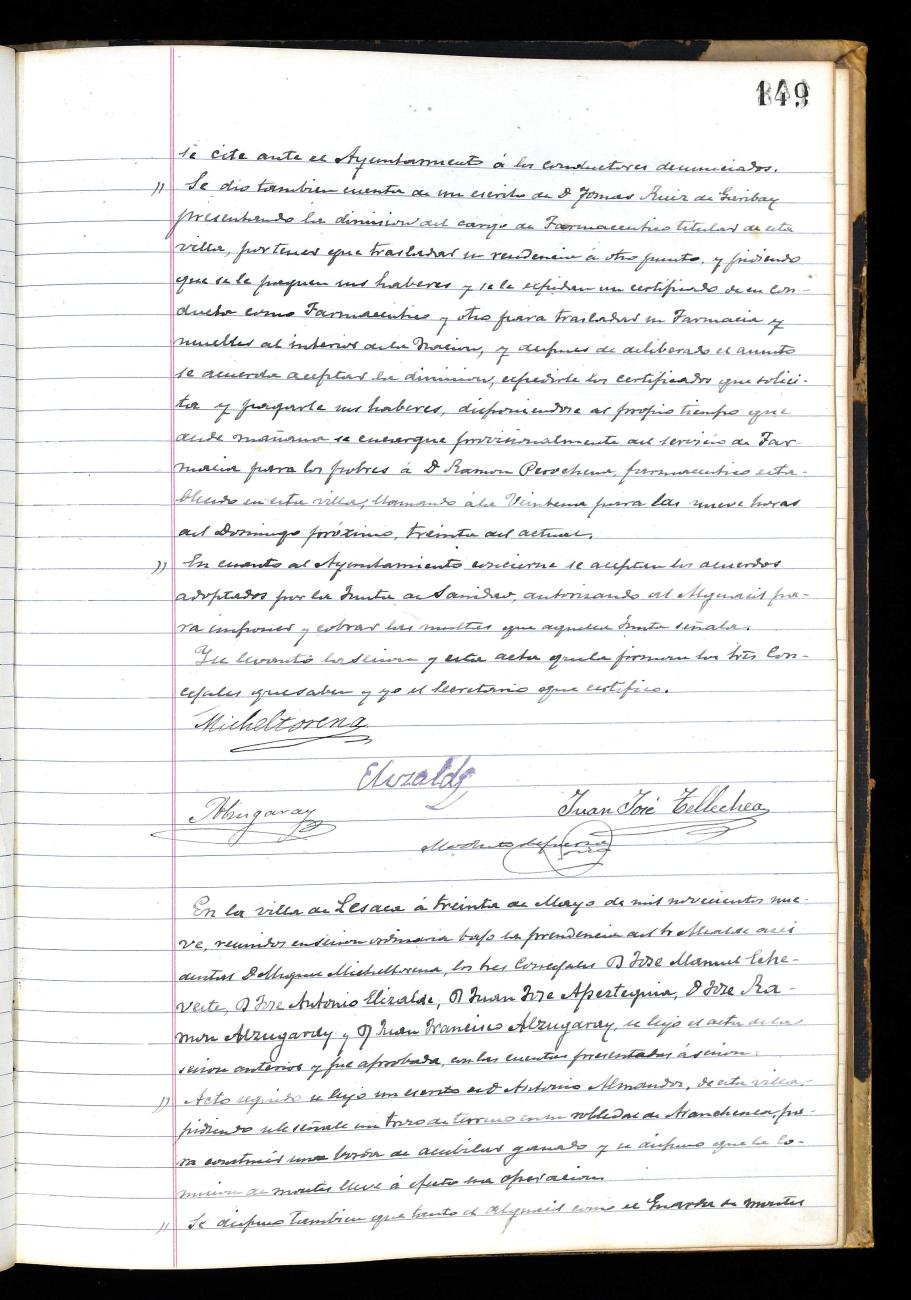 149
se cite ante el Ayuntamiento á los conductores denunciados.
" Se dio tambien cuenta de un escrito de D Tomas Ruiz de Garibay
presentando la dimision del cargo de Farmaceutico titular de esta
villa, por tener que trasladar su residencia á otro punto, y pidiendo
que se le paguen sus haberes y se le expidan un certificado de su con-
ducta como Farmaceutico y otro para trasladar su Farmacia y
muebles al interior de la Nacion, y despues de deliberado el asunto
se acuerda aceptar la dimision, expedirle los certificados que solici-
ta y pagarle sus haberes, disponiendose al propio tiempo que
desde mañana se encargue provisionalmente del servicio de Far-
macia para los pobres á D Ramon Perochena, farmaceutico esta-
blecido en esta villa, llamando á la Veintena para las nueve horas
del Domingo próximo, treinta del actual.
" En cuanto al Ayuntamiento concierne se aceptan los acuerdos
adoptados por la Junta de Sanidad, autorizando al Alguacil pa-
ra imponer y cobrar las multas que aquella Junta señala.
Y se levantó la sesion y esta acta que la firman los Sres Con-
cejales que saben y yo el Secretario que certifico.
Micheltorena
Elizalde
Alzugaray
Juan José Tellechea
En la villa de Lesaca á treinta de Mayo de mil novecientos nue-
ve, reunidos en sesion ordinaria bajo la presidencia del Sr Alcalde acci
dental D Miguel Micheltorena, los Sres Concejales D José Manuel Eche-
veste, D José Antonio Elizalde, D Juan José Apezteguia, D José Ra-
mon Alzugaray y D Juan Francisco Alzugaray, se leyó el acta de la
sesion anterior y fue aprobada, con las cuentas presentadas á sesion.
" Acto seguido se leyo un escrito de D Antonio Almandoz, de esta villa,
pidiendo se le señale un trozo de terreno en su robledal de pa-
ra construir una borda de acubilar ganado y se dispuso que la Co-
mision de montes lleve á efecto esa operacion.
" Se dispuso tambien que tanto el Alguacil como el Guarda de montes